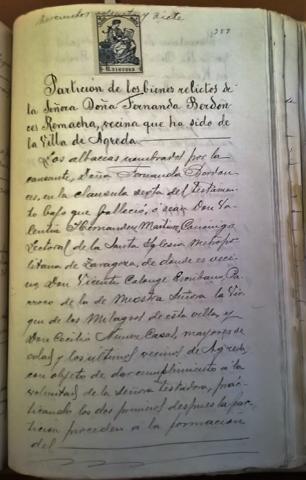 trescientos ochenta y siete
387
Partición de los bienes relictos de
la Señora Doña Fernanda Bordon-
ces Remacha, vecina que ha sido de
la Villa de Agreda
Los albaceas nombrados por la
causante, Doña Fernanda Bordon-
ces, en la clausula sexta del testamen-
to bajo que falleció, ó sean Don Va-
lentin Hernandez Martinez, Canonigo
Lectoral de la Santa Iglesia Metropo-
litana de Zaragoza, de donde es veci-
no, Don Vicente Calonge Escribano, Pa-
rroco de la de Nuestra Señora la Vir-
gen de los Milagros de esta villa y
Don Cecilio Nuñez Casal, mayores de
edad y los ultimos vecinos de Agreda,
con objeto de dar cumplimiento á la
voluntad de la señora testadora, prac-
ticando los dos primeros despues la par-
ticion proceden a la formacion
del